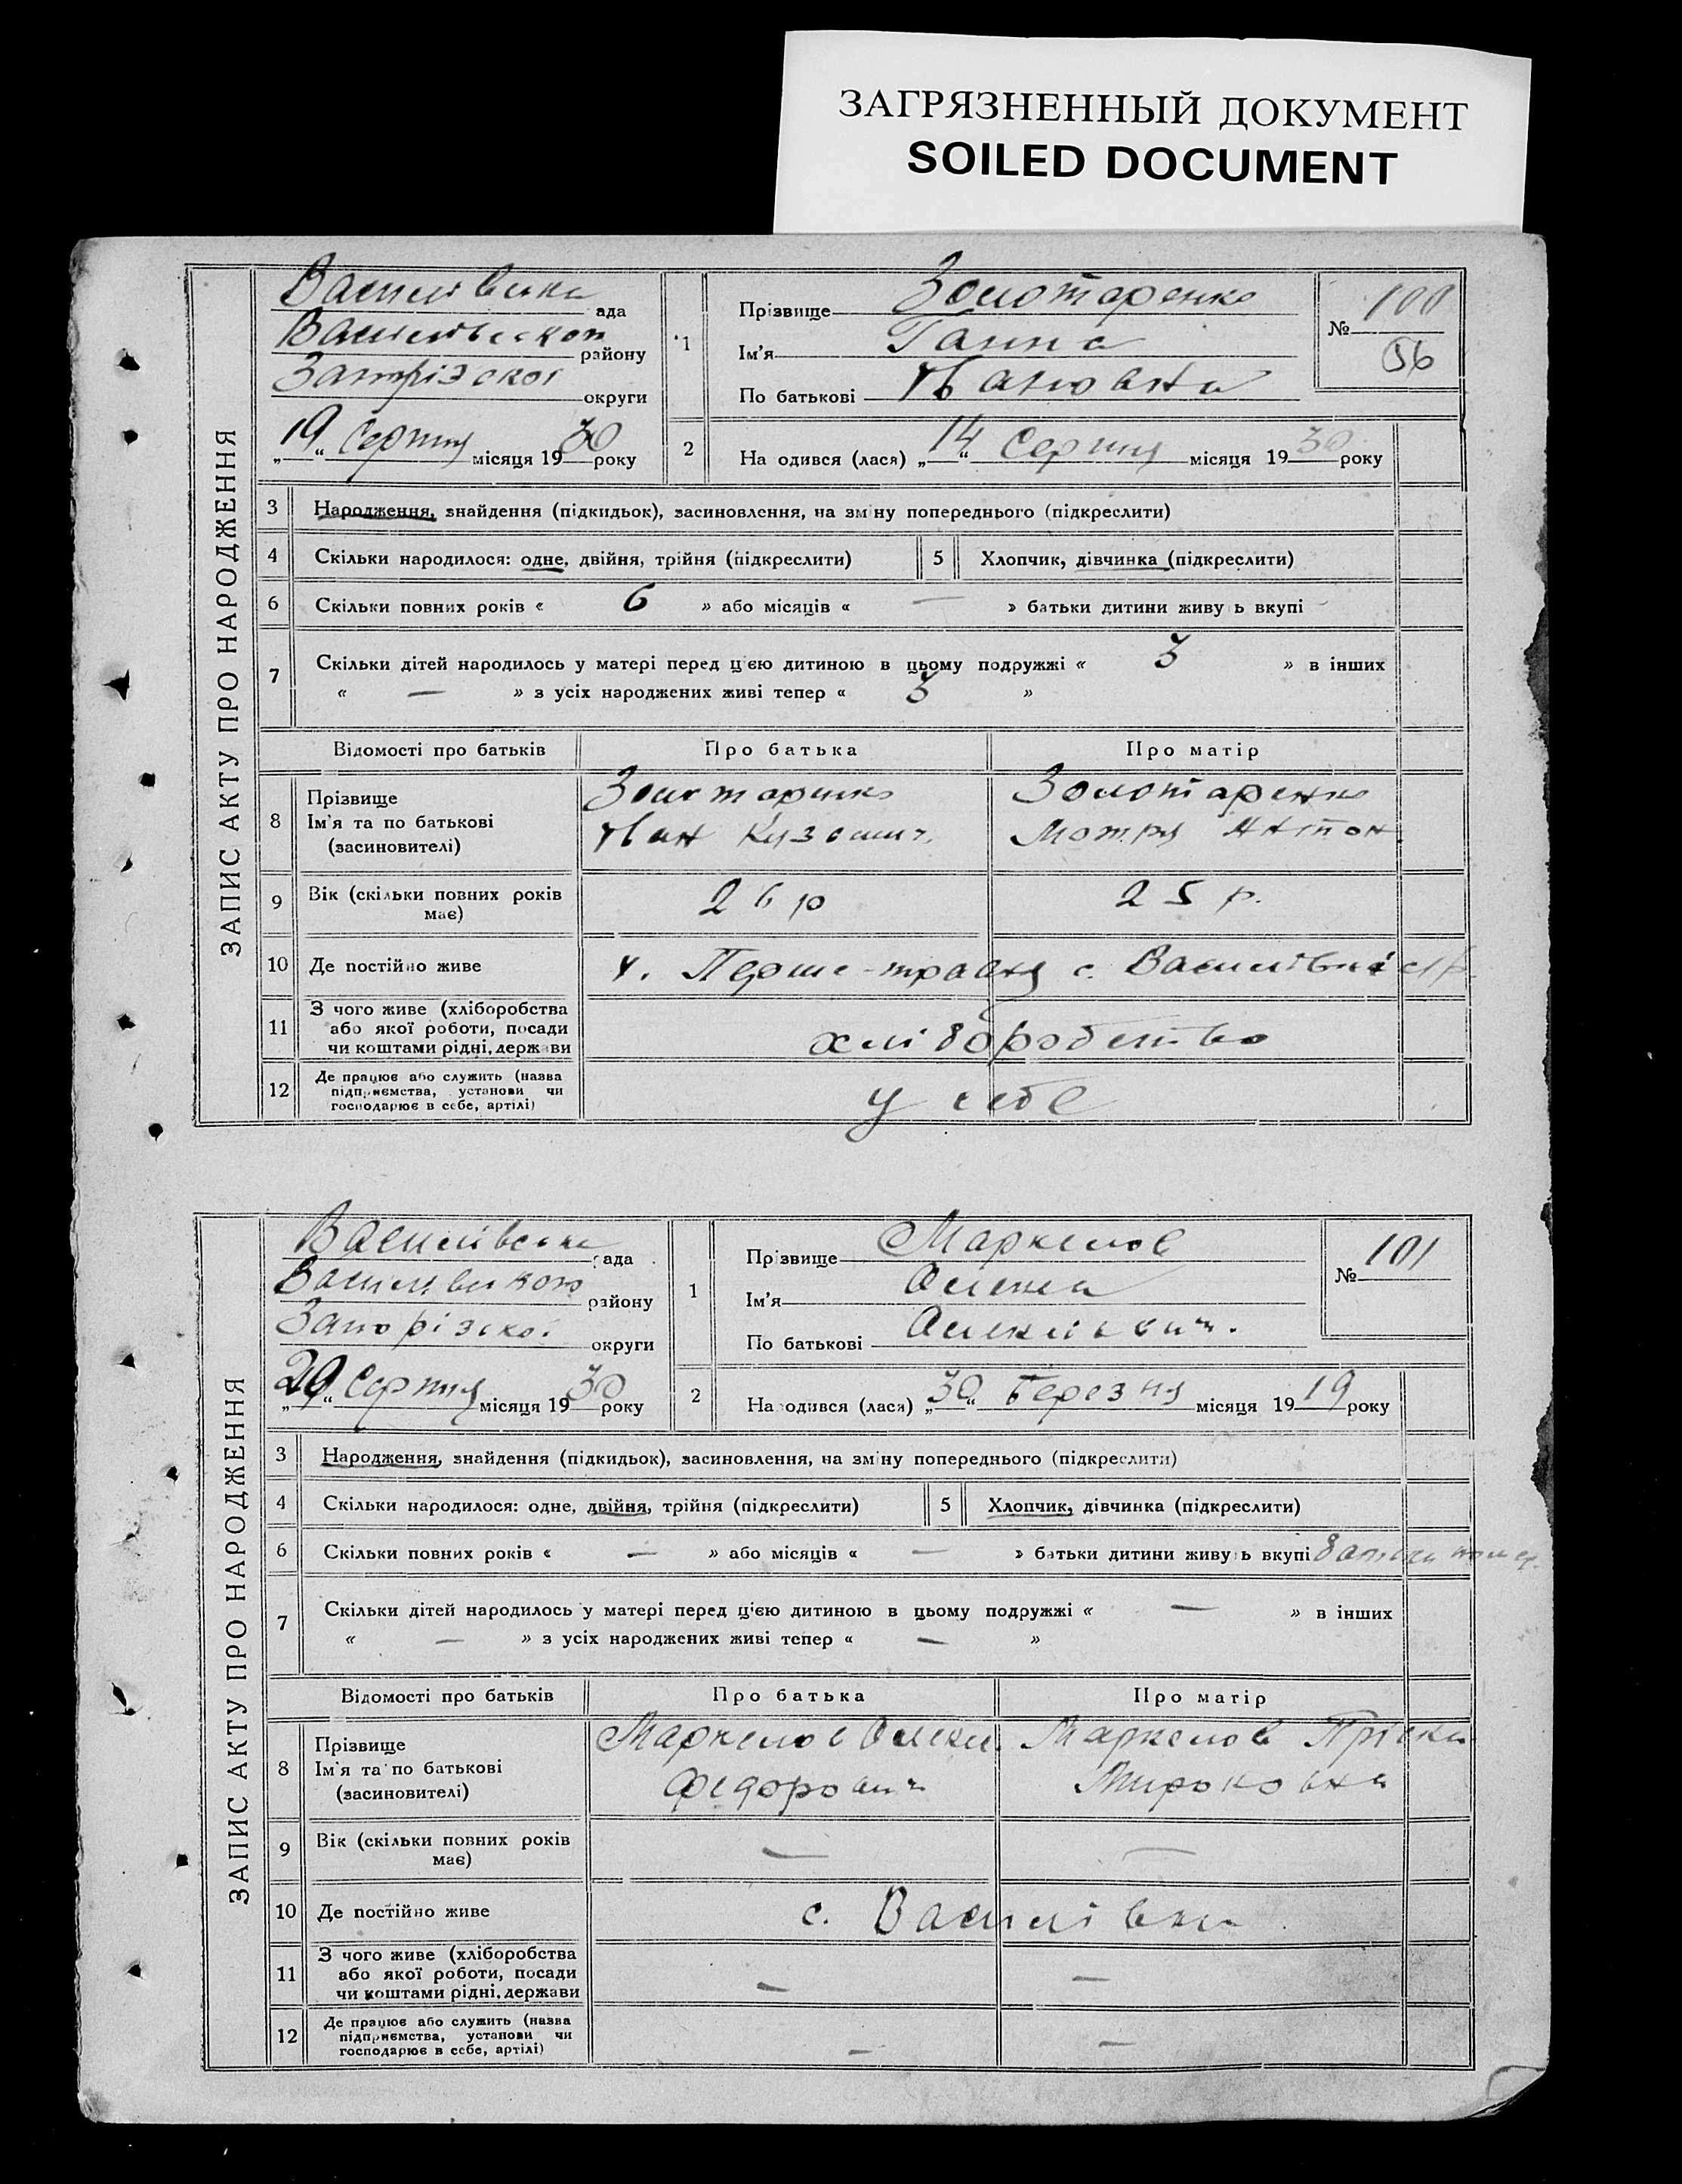 ЗАГРЯЗНЕННЫЙ ДОКУМЕНТ
SOILED DOCUMENT
ЗАПИС АКТУ ПРО НАРОДЖЕННЯ
Василівська рада
району
Запорізької округи
„19“ Серпня місяця 1930 року
1
Прізвище Золотаренко
Ім'я Ганна
По батькові Івановна
№ 100
56
2
Народився (лася) „14“ Серпня місяця 1930 року
3 Народження, знайдення (підкидьок), засиновлення, на зміну попереднього (підкреслити)
4 Скільки народилося: одне, двійня, трійня (підкреслити) 5 Хлопчик, дівчинка (підкреслити)
6 Скільки повних років « 6 » або місяців « — » батьки дитини живуть вкупі
7 Скільки дітей народилось у матері перед цією дитиною в цьому подружжі « 3 » в інших
« — » з усіх народжених живі тепер « 3 »
Відомості про батьків Про батька Про матір
8 Прізвище Золотаренко Золотаренко
Ім'я та по батькові Іван Кузьмич. Мотря Антон.
(засиновителі)
9 Вік (скільки повних років має) 26 р 25 р.
10 Де постійно живе Перше-травня с. Василівка
11 З чого живе (хліборобства або якої роботи, посади чи коштами рідні, держави хліборобство
12 Де працює або служить (назва підприємства, установи чи господарює в себе, артілі) у себе
ЗАПИС АКТУ ПРО НАРОДЖЕННЯ
Василівська рада
району
Запорізької округи
„29“ Серпня місяця 1930 року
1
Прізвище Маркелов
Ім'я
По батькові
№ 101
2
Народився (лася) „30“ Березня місяця 1919 року
3 Народження, знайдення (підкидьок), засиновлення, на зміну попереднього (підкреслити)
4 Скільки народилося: одне, двійня, трійня (підкреслити) 5 Хлопчик, дівчинка (підкреслити)
6 Скільки повних років « — » або місяців « — » батьки дитини живуть вкупі
7 Скільки дітей народилось у матері перед цією дитиною в цьому подружжі « — » в інших
« — » з усіх народжених живі тепер « — »
Відомості про батьків Про батька Про матір
8 Прізвище Маркелов Олекс. Маркелов
Ім'я та по батькові Федорович Мироновна
(засиновителі)
9 Вік (скільки повних років має) — —
10 Де постійно живе с. Василівка
11 З чого живе (хліборобства або якої роботи, посади чи коштами рідні, держави — —
12 Де працює або служить (назва підприємства, установи чи господарює в себе, артілі) — —